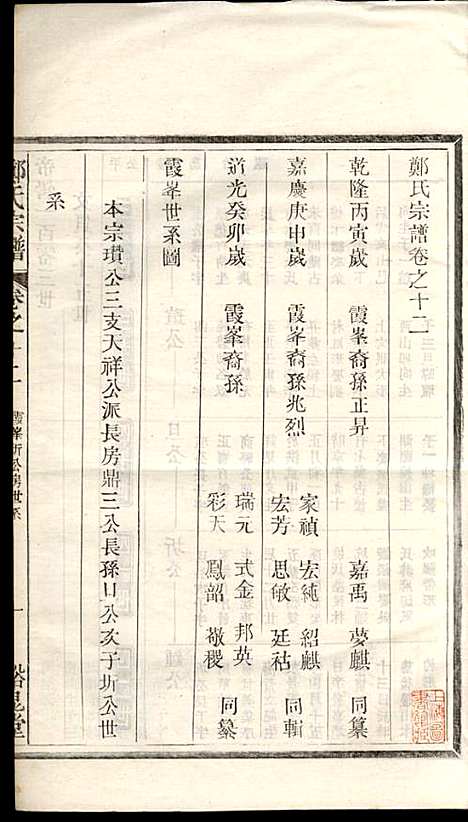 鄭氏宗譜卷之十二
乾隆丙寅歲 霞峯裔孫正昇 嘉禹 夢麒 同纂
嘉慶庚申歲 霞峯裔孫兆烈 家禎 宏純 紹麒 宏芳 思敏 廷祜 同輯
道光癸卯歲 霞峯裔孫 瑞元 式金 邦英 彩天 鳳韶 敬稷 同纂
霞峯世系圖
本宗瓚公三支天祥公派長房鼎三公長孫口公亥子圻公世
系
鄭氏宗譜 卷之十二 霞峯圻公房世系 一